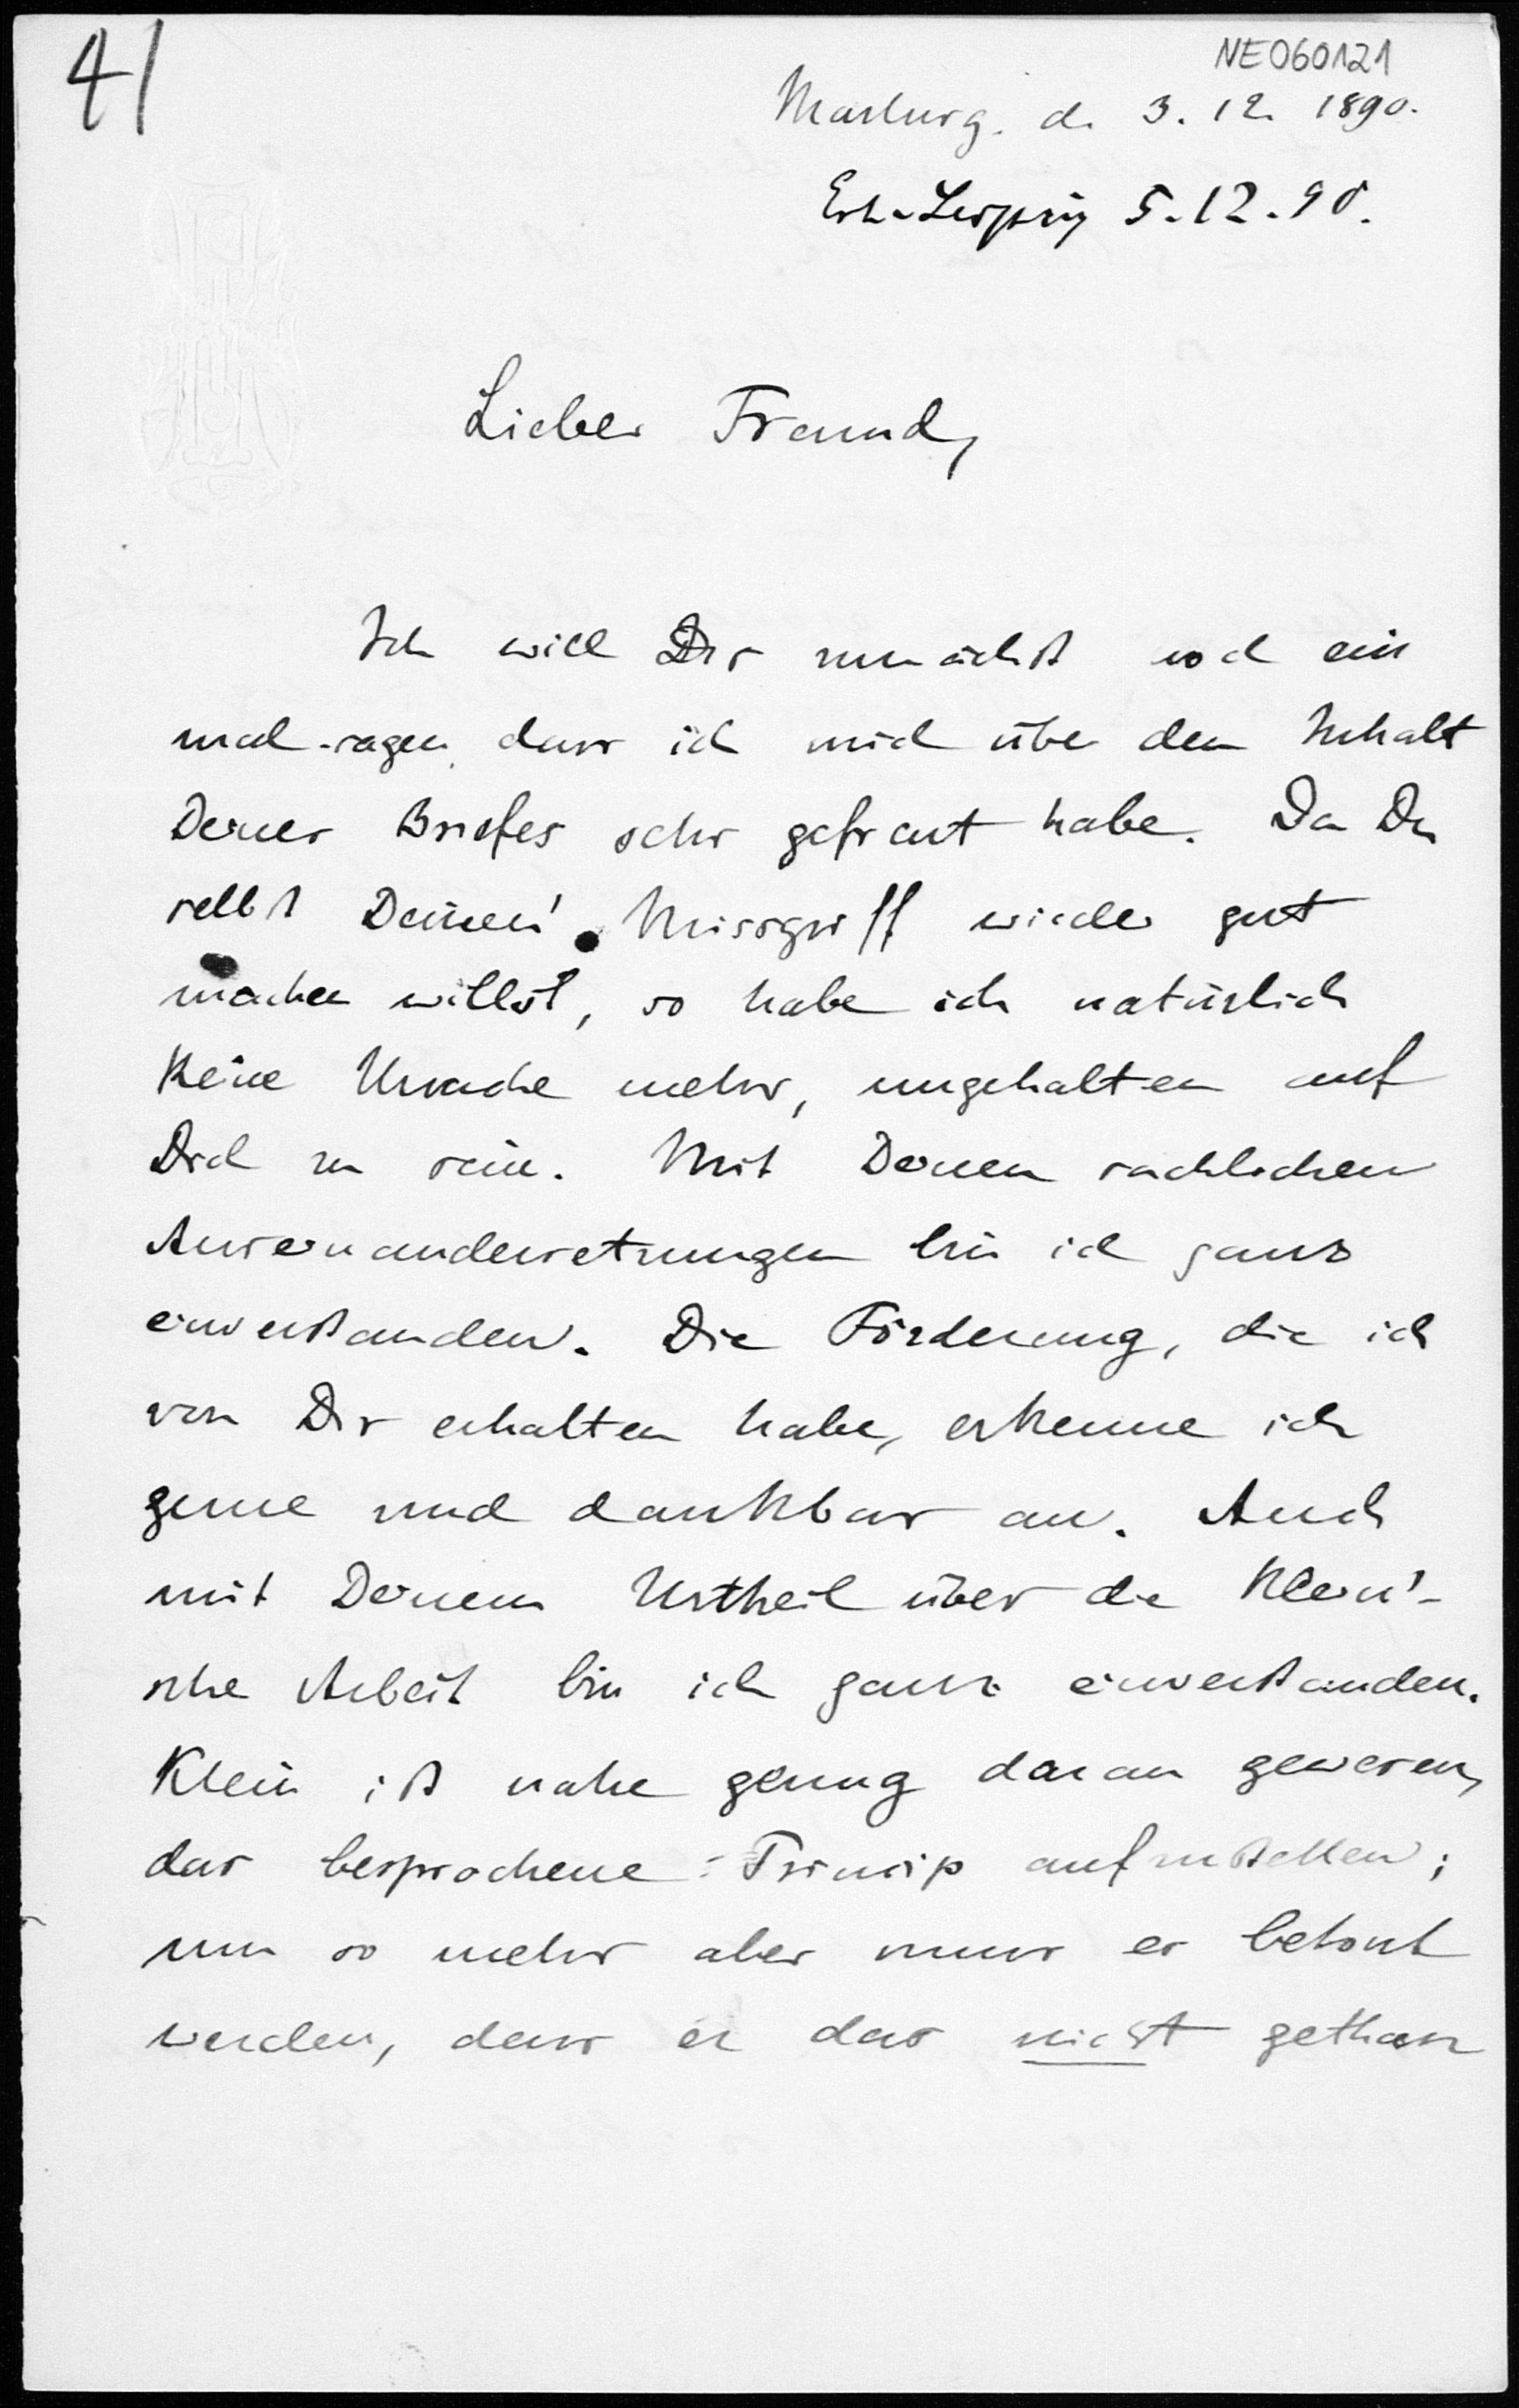 41
NE060121
Marburg. d. 3. 12. 1890.
Erh. Leipzig 5.12.90.
Lieber Freund,
Ich will Dir zunächst noch ein
mal sagen, dass ich mich über den Inhalt
Deines Briefes sehr gefreut habe. Da Du
selbst Deinen Missgriff wieder gut
machen willst, so habe ich natürlich
keine Ursache mehr, ungehalten auf
Dich zu sein. Mit Deinen sachlichen
Auseinandersetzungen bin ich ganz
einverstanden. Die Förderung, die ich
von Dir erhalten habe, erkenne ich
gerne und dankbar an. Auch
mit Deinem Urtheil über die Klein'-
sche Arbeit bin ich ganz einverstanden.
Klein ist nahe genug daran gewesen,
das besprochene Princip aufzustellen;
um so mehr aber muss es betont
werden, dass er das nicht gethan